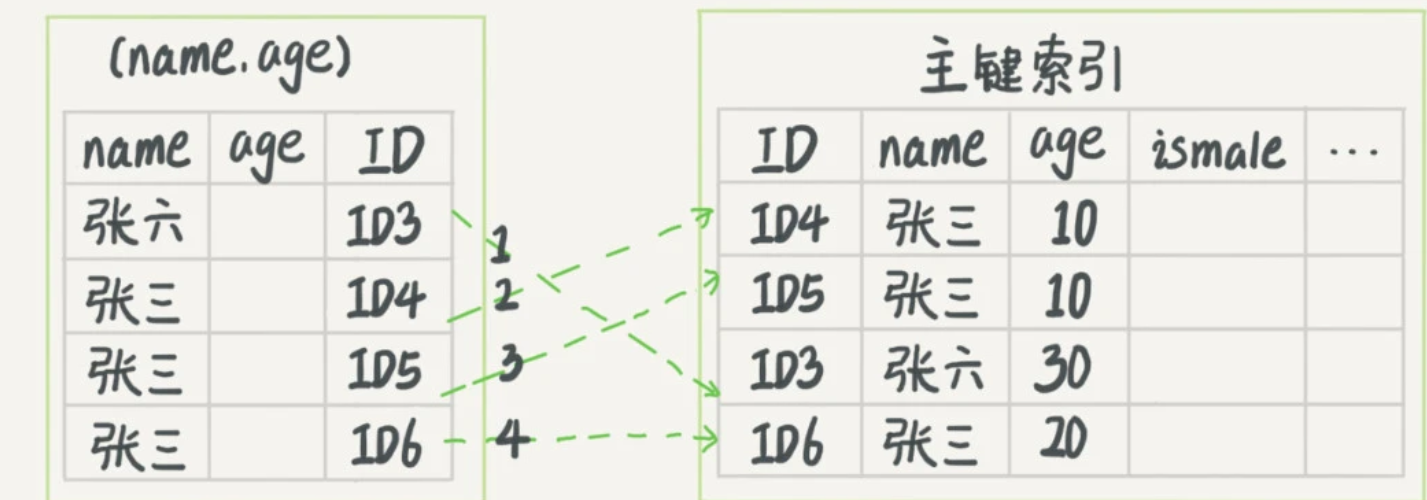 (name,age)
name age ID
张六 ID3
张三 ID4
张三 ID5
张三 ID6
1
2
3
4
主键索引
ID name age ismale ...
ID4 张三 10
ID5 张三 10
ID3 张六 30
ID6 张三 20